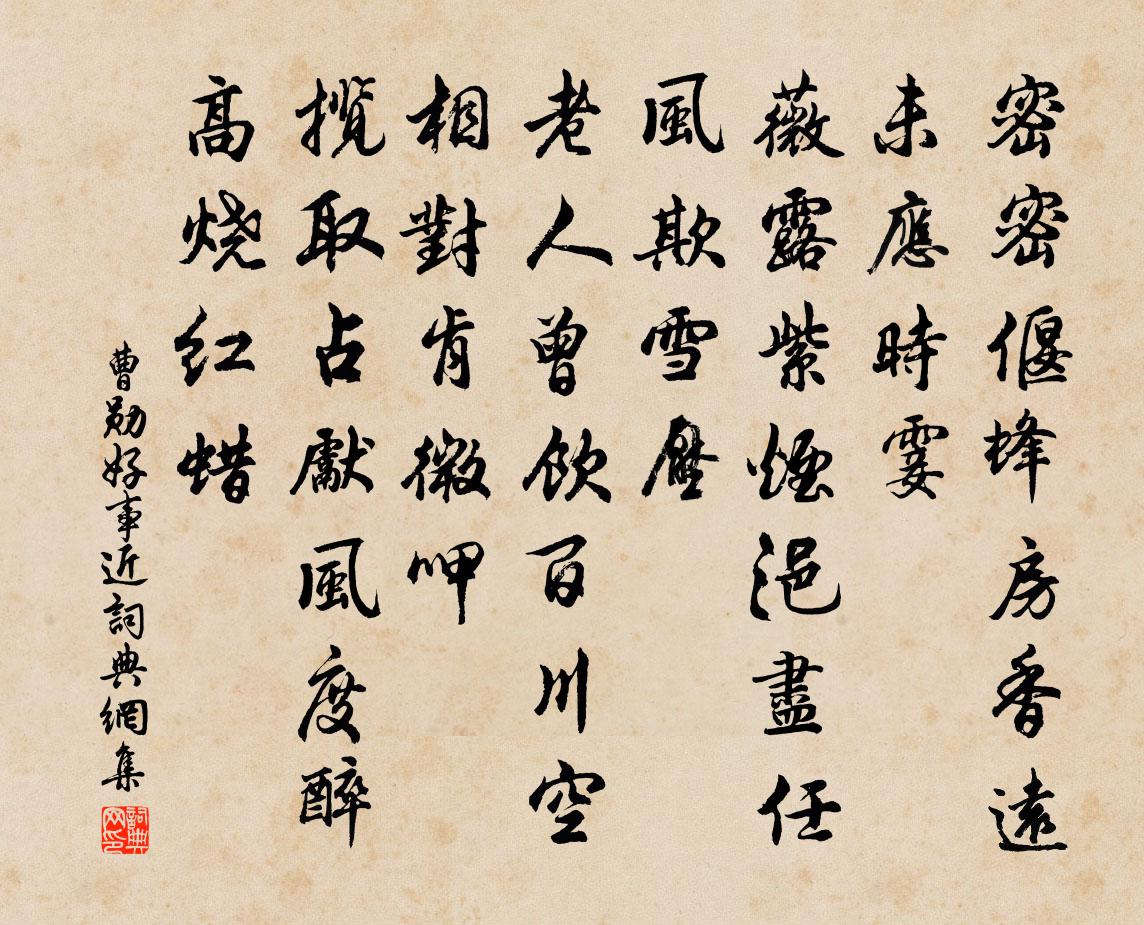 密密偃蜂房香遠
未應時霎
薇露紫煙浥盡任
風欺雪壓
老人曾飲百川空
相對肯微呷
攬取占獻風度醉
高燒紅蜡
曹勛好事近詞典網集
詞典网印